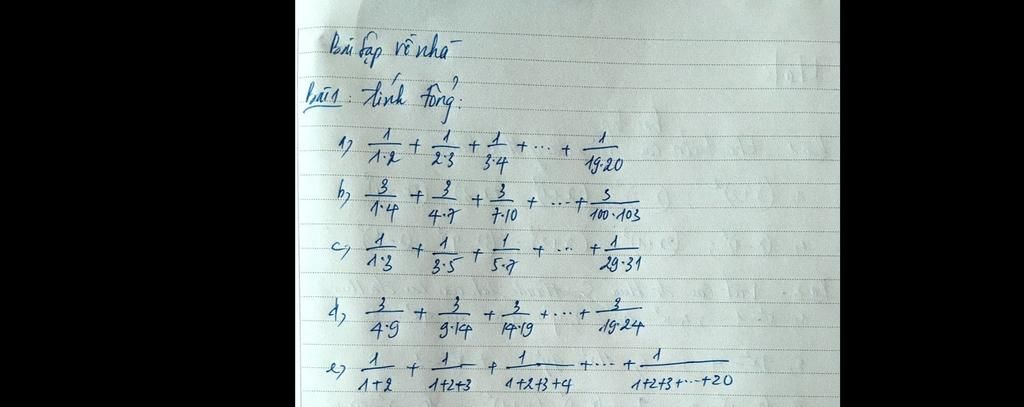 Bài tập về nhà
Bài 1: Tính tổng:
a, 1/1·2 + 1/2·3 + 1/3·4 + ... + 1/19·20
b, 3/1·4 + 3/4·7 + 3/7·10 + ... + 3/100·103
c, 1/1·3 + 1/3·5 + 1/5·7 + ... + 1/29·31
d, 3/4·9 + 3/9·14 + 3/14·19 + ... + 3/19·24
e, 1/1+2 + 1/1+2+3 + 1/1+2+3+4 + ... + 1/1+2+3+...+20